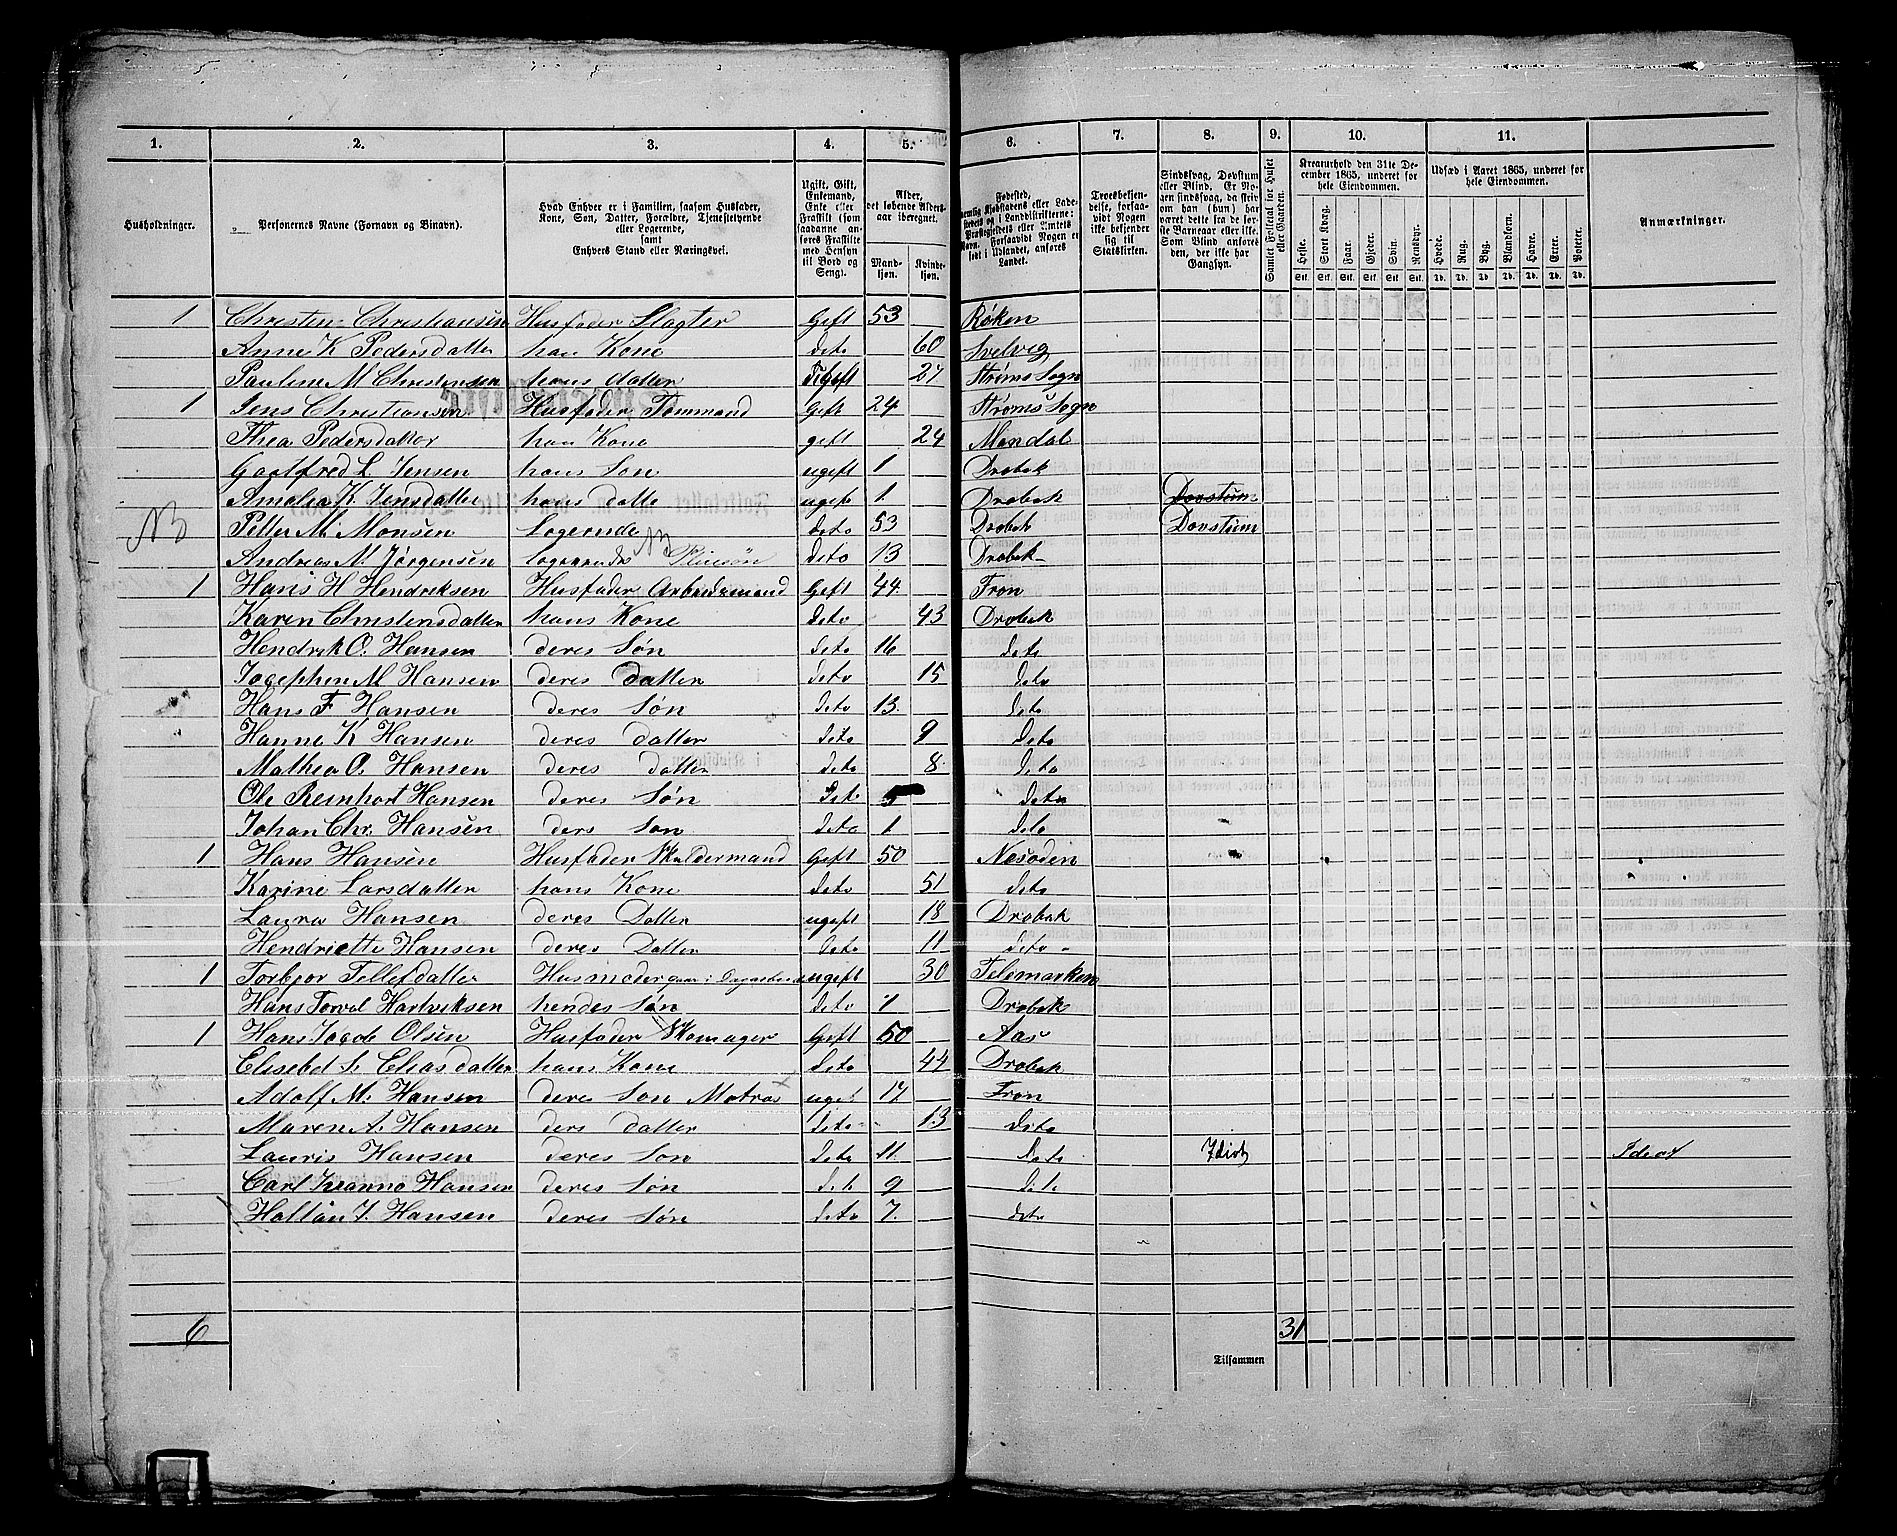 1. 2. 3. 4. 5. 6. 7. 8. 9. 10. 11.
Husholdninger.
Personernes Navne (Fornavn og Binavn).
Hvad Enhver er i Familien, saasom Husfader, Kone, Søn, Datter, Forældre, Tjenestetyende eller Logerende, samt Enhvers Stand eller Næringsvei.
Ugift, Gift, Enkemand, Enke eller Fraskilt (som saadanne anføres Fraskilte med Hensyn til Bord og Seng).
Alder, det løbende Aldersaar iberegnet.
Mandkjøn. Kvindekjøn.
Fødested,
Troesbekjendelse, forsaavidt Nogen ikke bekjender sig til Statskirken.
Sindssvag, Døvstum eller Blind. Er Nogen sindssvag, da skriv om han (hun) har været dette fra de første Barneaar eller ikke. Som Blind anføres den, der ikke har Gangsyn.
Samlet Folketal for Huset eller Gaarden.
Kreaturhold den 31te December 1865, underet for hele Eiendommen.
Heste. Stort Kvæg. Faar. Gjeder. Svin. Rensdyr.
Stk. Stk. Stk. Stk. Stk. Stk.
Udsæd i Aaret 1865, underet for hele Eiendommen.
Hvede. Rug. Byg. Blandkorn. Havre. Erter. Poteter.
Td. Td. Td. Td. Td. Td. Td.
Anmærkninger.
1 Christen Christiansen Husfader Slagter Gift 53 Røken
Anne K Pedersdatter han Kone deto 60 Svelvig
Pauline M Christensen hans datter 27 Strøms Sogn
1 Jens Christiansen Husfader Tømmand Gift 24. Strøms Sogn
Thea Pedersdatter han Kone gift 24 Mandal
Gootfred L Jensen hans Søn ugift 1 Drøbak
Amalia K Jensdatter hans datte ugift 1. Drøbak Dovstum
NB Petter M. Monsen Logernde deto 53 Drøbak Dovstum
Andreas M. Jørgensen logerende NB Pleiesøn deto 13 Drøbak
1 Hans H Hendriksen Husfader Arbeidsmand Gift 44. Fron
Karen Christensdatter hans Kone deto 43 Drøbak
Hendrik O. Hansen deres Søn deto 16 deto
Josephine M Hansen deres datter deto 15 deto
Hans F Hansen deres Søn deto 13. deto
Hanne K Hansen deres datter deto 9 deto
Mathea O. Hansen deres datter deto 8. deto
Ole Reinhart Hansen deres Søn deto 5 deto
Johan Chr. Hansen ders Søn deto 1. deto
1 Hans Hansen Husfader Skuldermand Gift 50 Nesodden
Karine Larsdatter hans Kone deto 51 deto
Laura Hansen deres Datter ugift 18 Drøbak
Hendriette Hansen deres Datter deto 11 deto
1 Torbjor Tellefdatter Husmoder ugift 30 Telemarken
Hans Torval Hartviksen hendes Søn deto 1 Drøbak
1 Hans Jacob Olsen Husfader Skomager Gift 50 Aas
Elisebet S. Eliasdatter hans Kone deto 44 Drøbak
Adolf M. Hansen deres Søn Matros x ugt 17 Fron
Maren A. Hansen ders datter deto 13 deto
Lauris Hansen deres Søn deto 11. deto Idiot Idiot
Carl Hansen deres Søn deto 9 deto
Halfan J. Hansen deres Søn deto 7. deto
6 31
Tilsammen